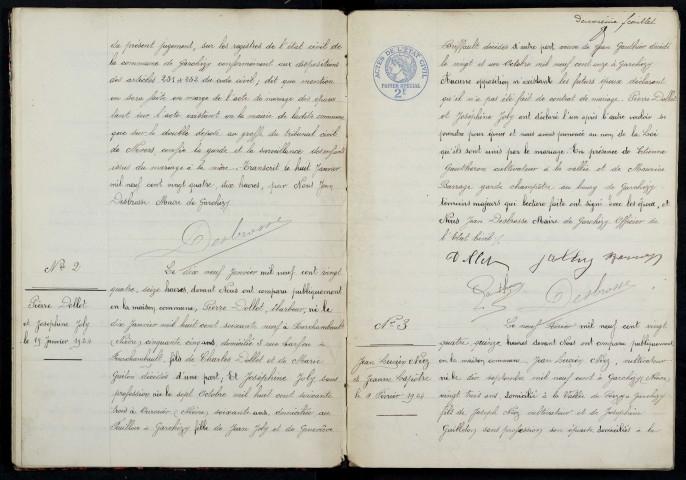 du présent jugement, sur les registres de l'état civil de
la commune de Garchizy conformément aux dispositions
des articles 251 et 252 du code civil; dit que mention
en sera faite en marge de l'acte de mariage des époux
tant sur l'acte existant en la mairie de ladite commune
que sur le double déposé au greffe du tribunal civil
de Nevers confie la garde et la surveillance des enfants
issus du mariage à la mère. Transcrit le huit Janvier
mil neuf cent vingt quatre, dix heures, par Nous Jean
Desbrosse Maire de Garchizy
Desbrosse
No 2
Pierre Dollet
et Joséphine Joly
le 19 Janvier 1924
Le dix neuf Janvier mil neuf cent vingt
quatre, seize heures, devant Nous ont comparu publiquement
en la maison commune, Pierre Dollet, né le
dix Janvier mil huit cent soixante neuf à Fourchambault
(Nièvre), cinquante cinq ans, domicilié 3 rue
Fourchambault, fils de Charles Dollet et de Marie
décédés d'une part; Et Joséphine Joly sans
profession née le sept Octobre mil huit cent soixante
trois à (Nièvre), soixante ans, domiciliée au
à Garchizy fille de Jean Joly et de Geneviève
Deuxième feuillet
ACTES DE L'ÉTAT CIVIL
PAPIER SPÉCIAL
2F
Briffault décédés d'autre part veuve de Jean Gaultier décédé
le vingt et un Octobre mil neuf cent onze à Garchizy
Aucune opposition n'existant les futurs époux déclarant
qu'il n'a pas été fait de contrat de mariage. Pierre Dollet
et Joséphine Joly ont déclaré l'un après l'autre vouloir se
prendre pour époux et nous avons prononcé au nom de la Loi
qu'ils sont unis par le mariage. En présence de Etienne
Gautheron cultivateur à la vallée et de Maurice
Barrage garde champêtre au bourg de Garchizy
témoins majeurs qui lecture faite ont signé avec les époux, et
Nous Jean Desbrosse Maire de Garchizy Officier de
l'Etat Civil
Desbrosse
No 3
Jean Lucien
et Jeanne Lapêtre
le 9 Février 1924
Le neuf Février mil neuf cent vingt
quatre, quinze heures devant Nous ont comparu publiquement
en la maison commune, Jean Lucien, cultivateur
né le dix septembre mil neuf cent à Garchizy (Nièvre)
vingt trois ans, domicilié à la Vallée de Garchizy
fils de Joseph cultivateur et de Joséphine
Guilleton sans profession son épouse domiciliés à la